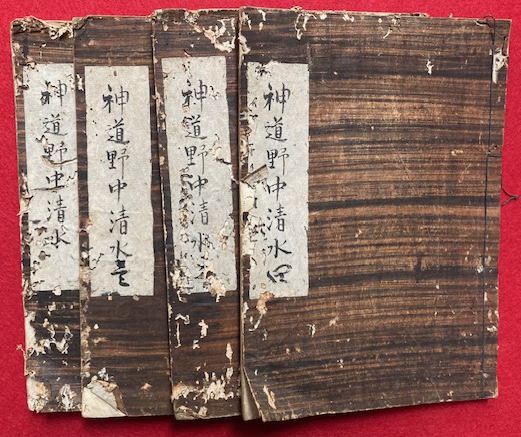 神道野中清水四
神道野中清水
神道野中清水
神道野中清水